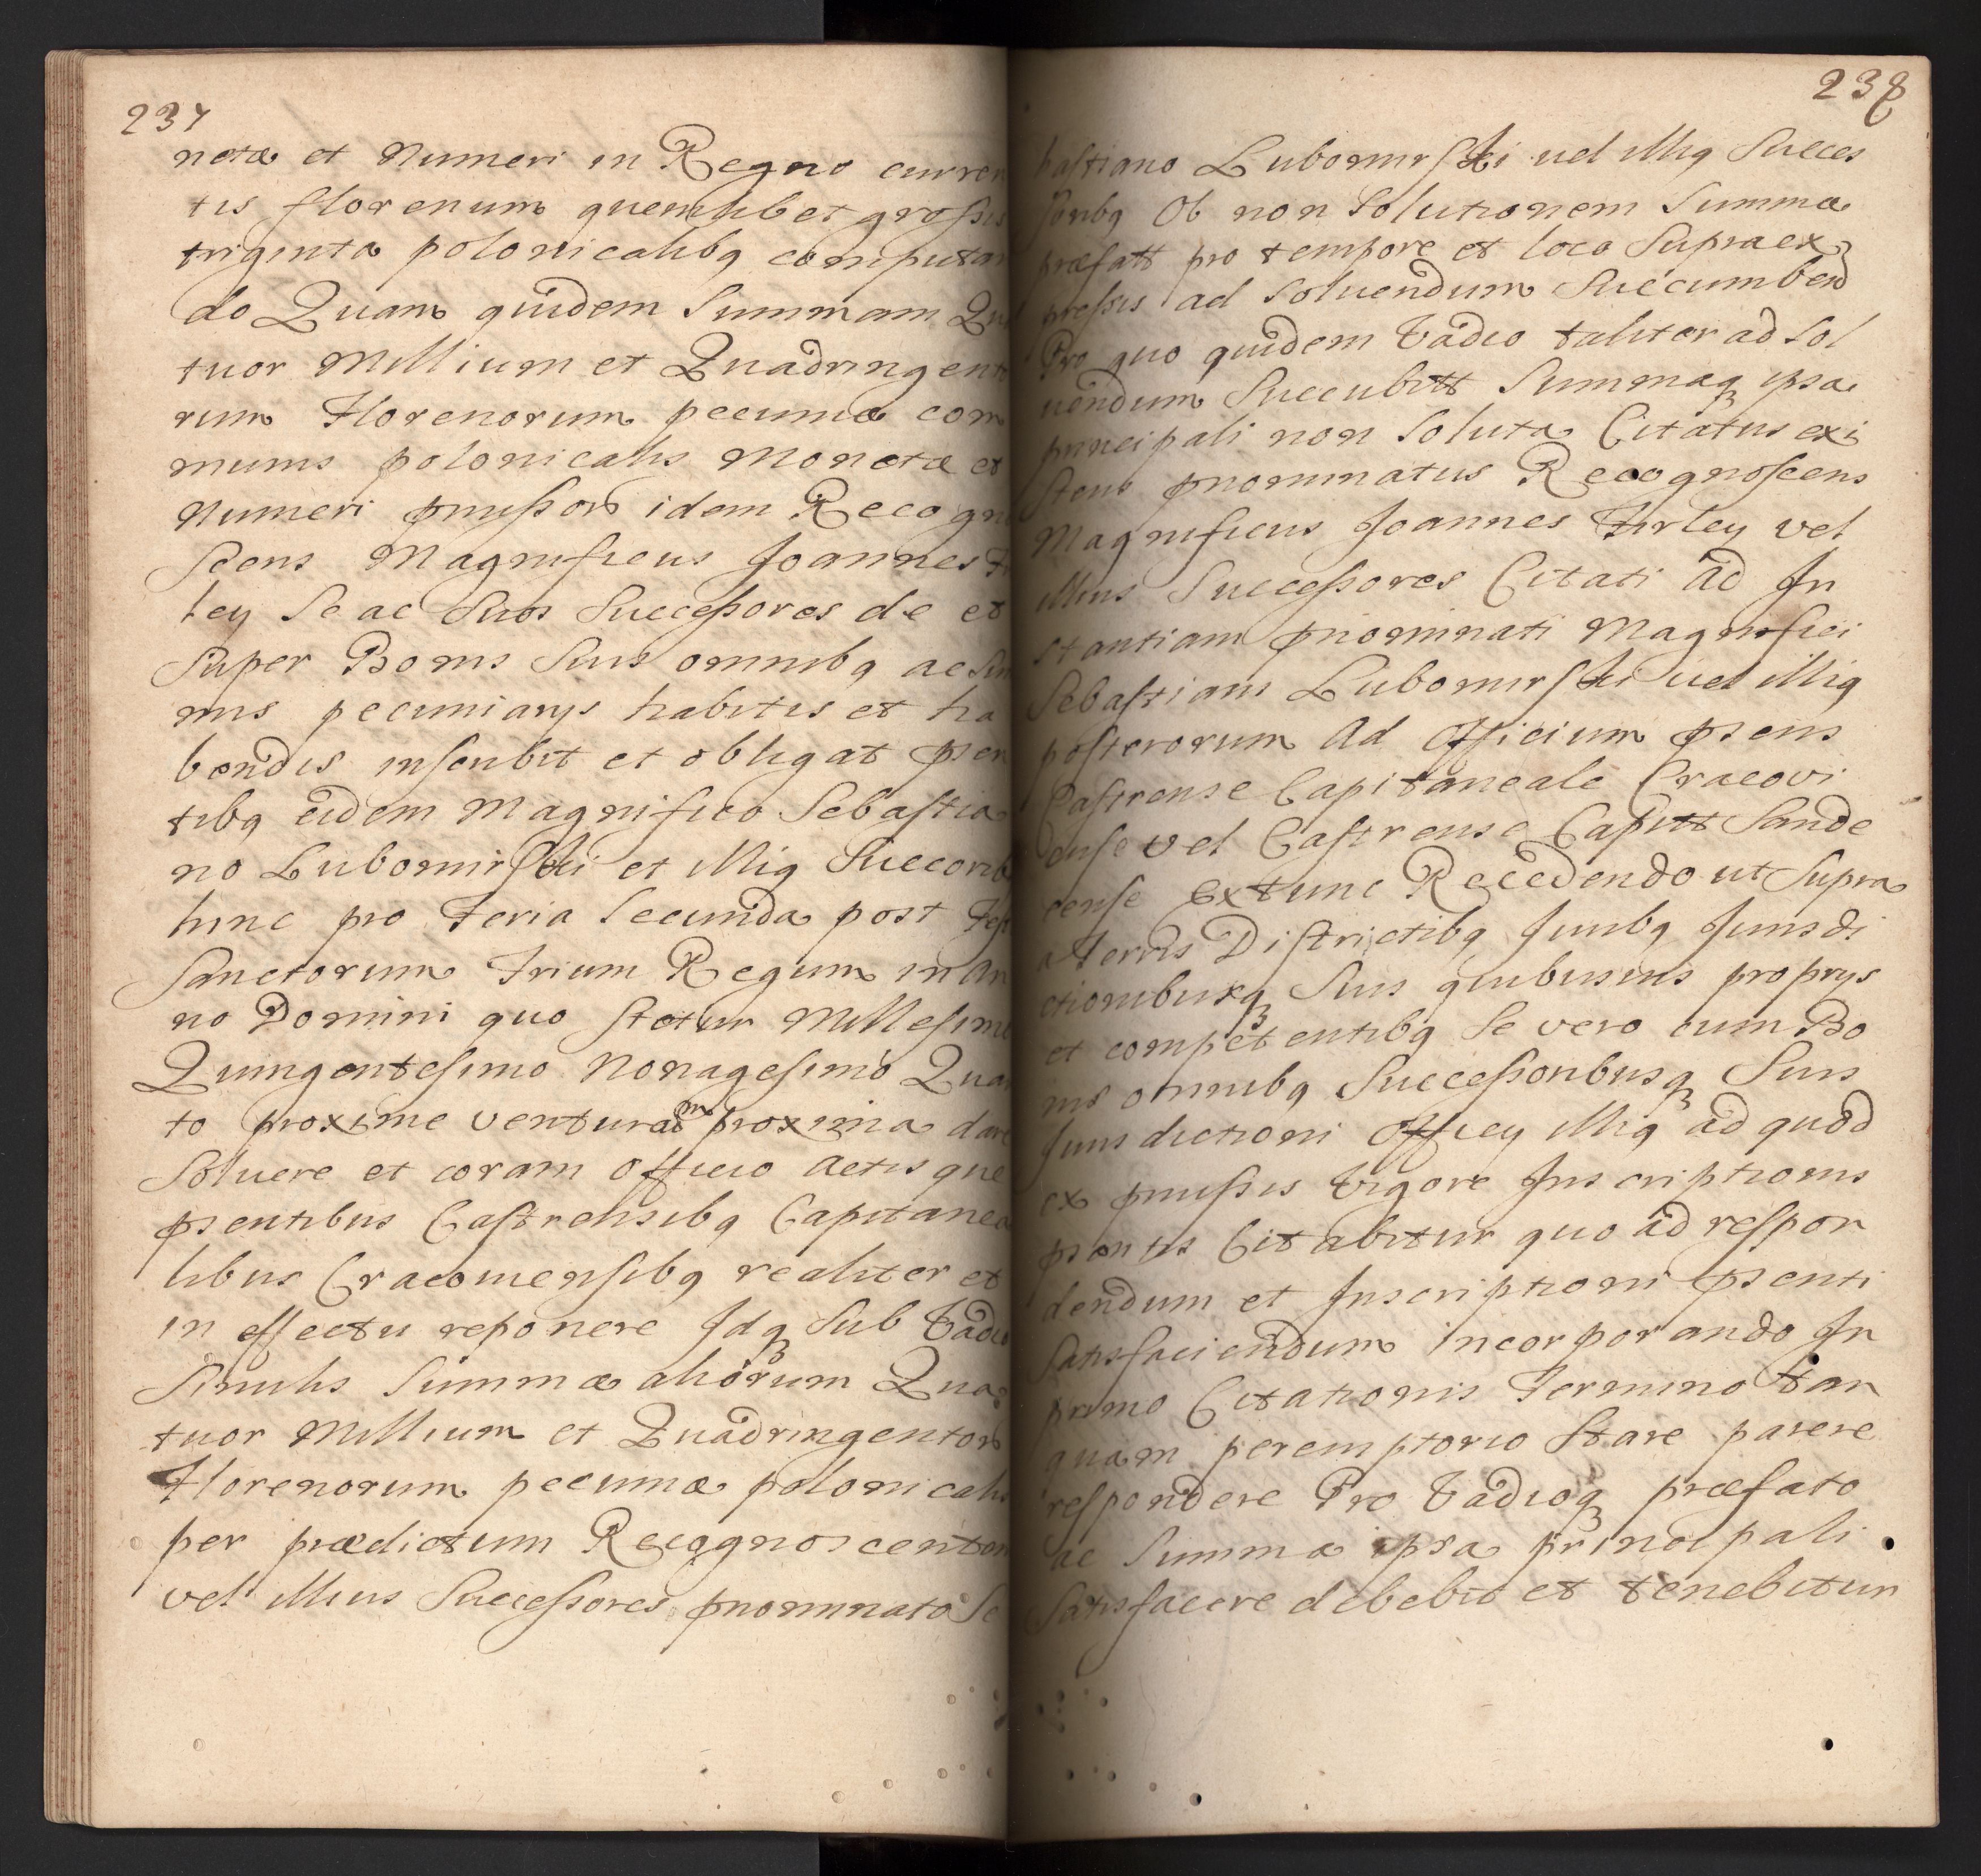 237
netæ et Numeri in Regno curren
tis florenum quemlibet großis
triginta polonicalibq computan
do Quam quidem Summam Qua
tuor Millium et Quadringento
rum Florenorum pecuniæ com
munis polonicalis Monetæ et
Numeri pmissor idem Recogno
scens Magnificus Joannes Fir
ley Se ac Suos Succeßores de et
Super Bonis Suis omnibq ac Sum
mis pecuniarys habitis et ha
bendis inscribit et obligat psen
tibq eidem Magnifico Sebastia
no Lubomirski et Illiq Succorib
hinc pro Feria Secunda post Fest
Sanctorum Trium Regum in An
no Domini quo Stetur Millesimo
Quingentesimo Nonagesimo Quar
to proxime venturam proxima dare
Soluere et coram officio Actisque
psentibus Castrensibq Capitanea
libus Cracouiensibq realiter et
in effectu reponere Idq Sub Vadio
Similis Summæ aliorum Qua
tuor Millium et Quadringentor
Florenorum pecuniæ polonicalis
per prædictum Recognoscentem
vel illius Succeßores pnominato Se
238
bastiano Lubomirski uel illiq Succes
soribq Ob non Solutionem Summæ
præfatt pro tempore et loco Supraex
preßis ad Soluendum Succumbend
Pro quo quidem Vadio taliter ad Sol
uendum Succubitt Summaq ipsa
principali non Soluta Citatus exi
stens pnominatus Recognoscens
Magnificus Joannes Firley vel
illius Succeßores Citati ad In
stantiam pnominati Magnifici
Sebastiani Lubomirski uel illiq
posterorum Ad Officium psens
Castrense Capitaneale Cracovi
ense vel Castrense Capitt Sande
cense Extunc Recedendo ut Supra
a Terris Districtibq Juribq Jurisdi
ctionibusq Suis quibusuis proprys
et competentibq Se vero cum Bo
nis omnibq Succeßoribusq Suis
Jurisdictioni Officy illiq ad quod
ex pmißis Vigore Inscriptionis
psentis Citabitur quo ad respon
dendum et Inscriptioni psenti
Satisfaciendum incorporando In
primo Citationis Termino tan
quam peremptorio Stare parere
respondere Pro Vadioq præfato
ac Summa ipsa principali
Satisfacere debebit et tenebitur